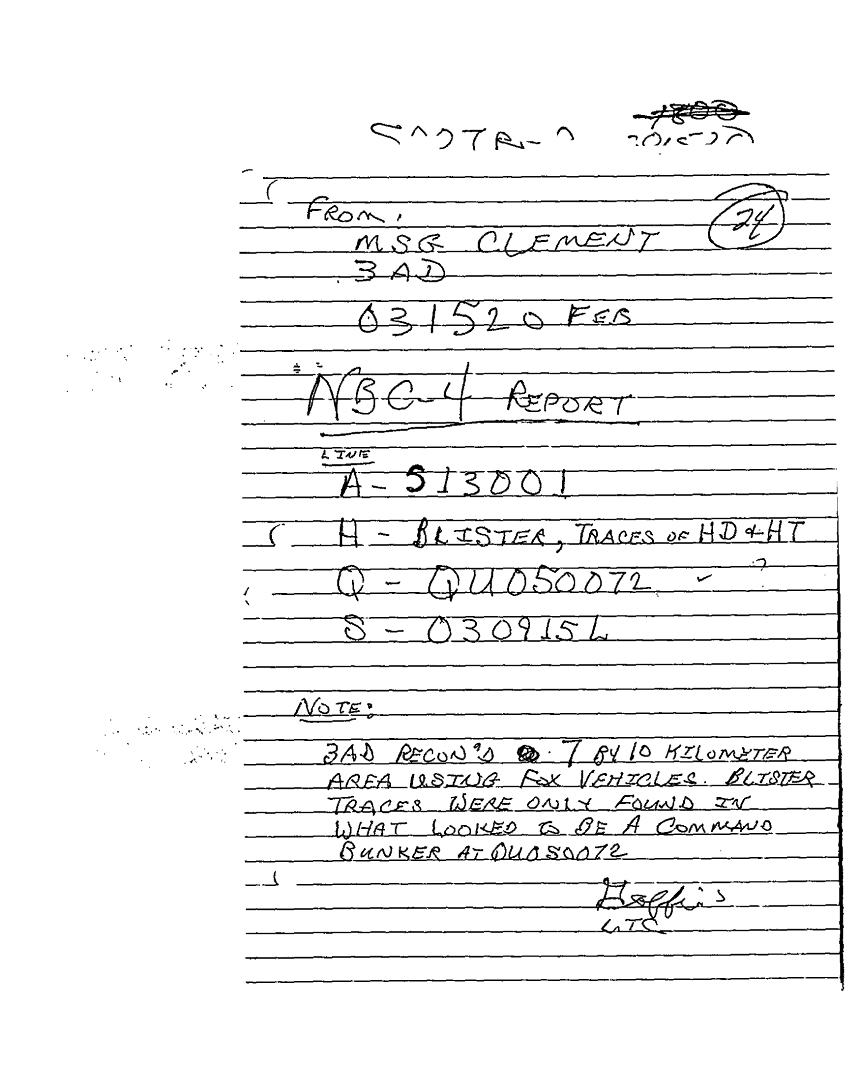 1800
From,
24
MSG CLEMENT
3AD
031520 FEB
NBC-4 REPORT
LINE
A - 513001
H - BLISTER, TRACES OF HD & HT
Q - QU050072 ✓ ?
S - 030915L
NOTE:
3AD RECON'D 7 BY 10 KILOMETER
AREA USING FOX VEHICLES. BLISTER
TRACES WERE ONLY FOUND IN
WHAT LOOKED TO BE A COMMAND
BUNKER AT QU050072
LTC